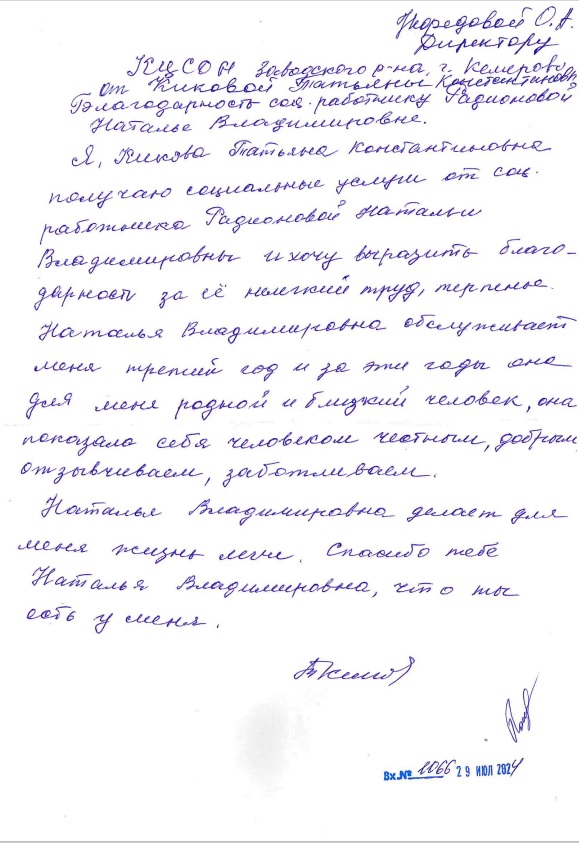 О. А.
Директору
КЦСОН Заводского р-на, г. Кемерово
от Киковой Татьяны Константиновны
Благодарность соц. работнику Радионовой
Наталье Владимировне.
Я, Кикова Татьяна Константиновна
получаю социальные услуги от соц.
работника Радионовой Натальи
Владимировны и хочу выразить благо-
дарность за её нелегкий труд, терпенье.
Наталья Владимировна обслуживает
меня третий год и за эти годы она
для меня родной и близкий человек, она
показала себя человеком честным, добрым,
отзывчиваем, заботливаем.
Наталья Владимировна делает для
меня жизнь легче. Спасибо тебе
Наталья Владимировна, что ты
есть у меня.
Вх.№ 1066 29 ИЮЛ 2024